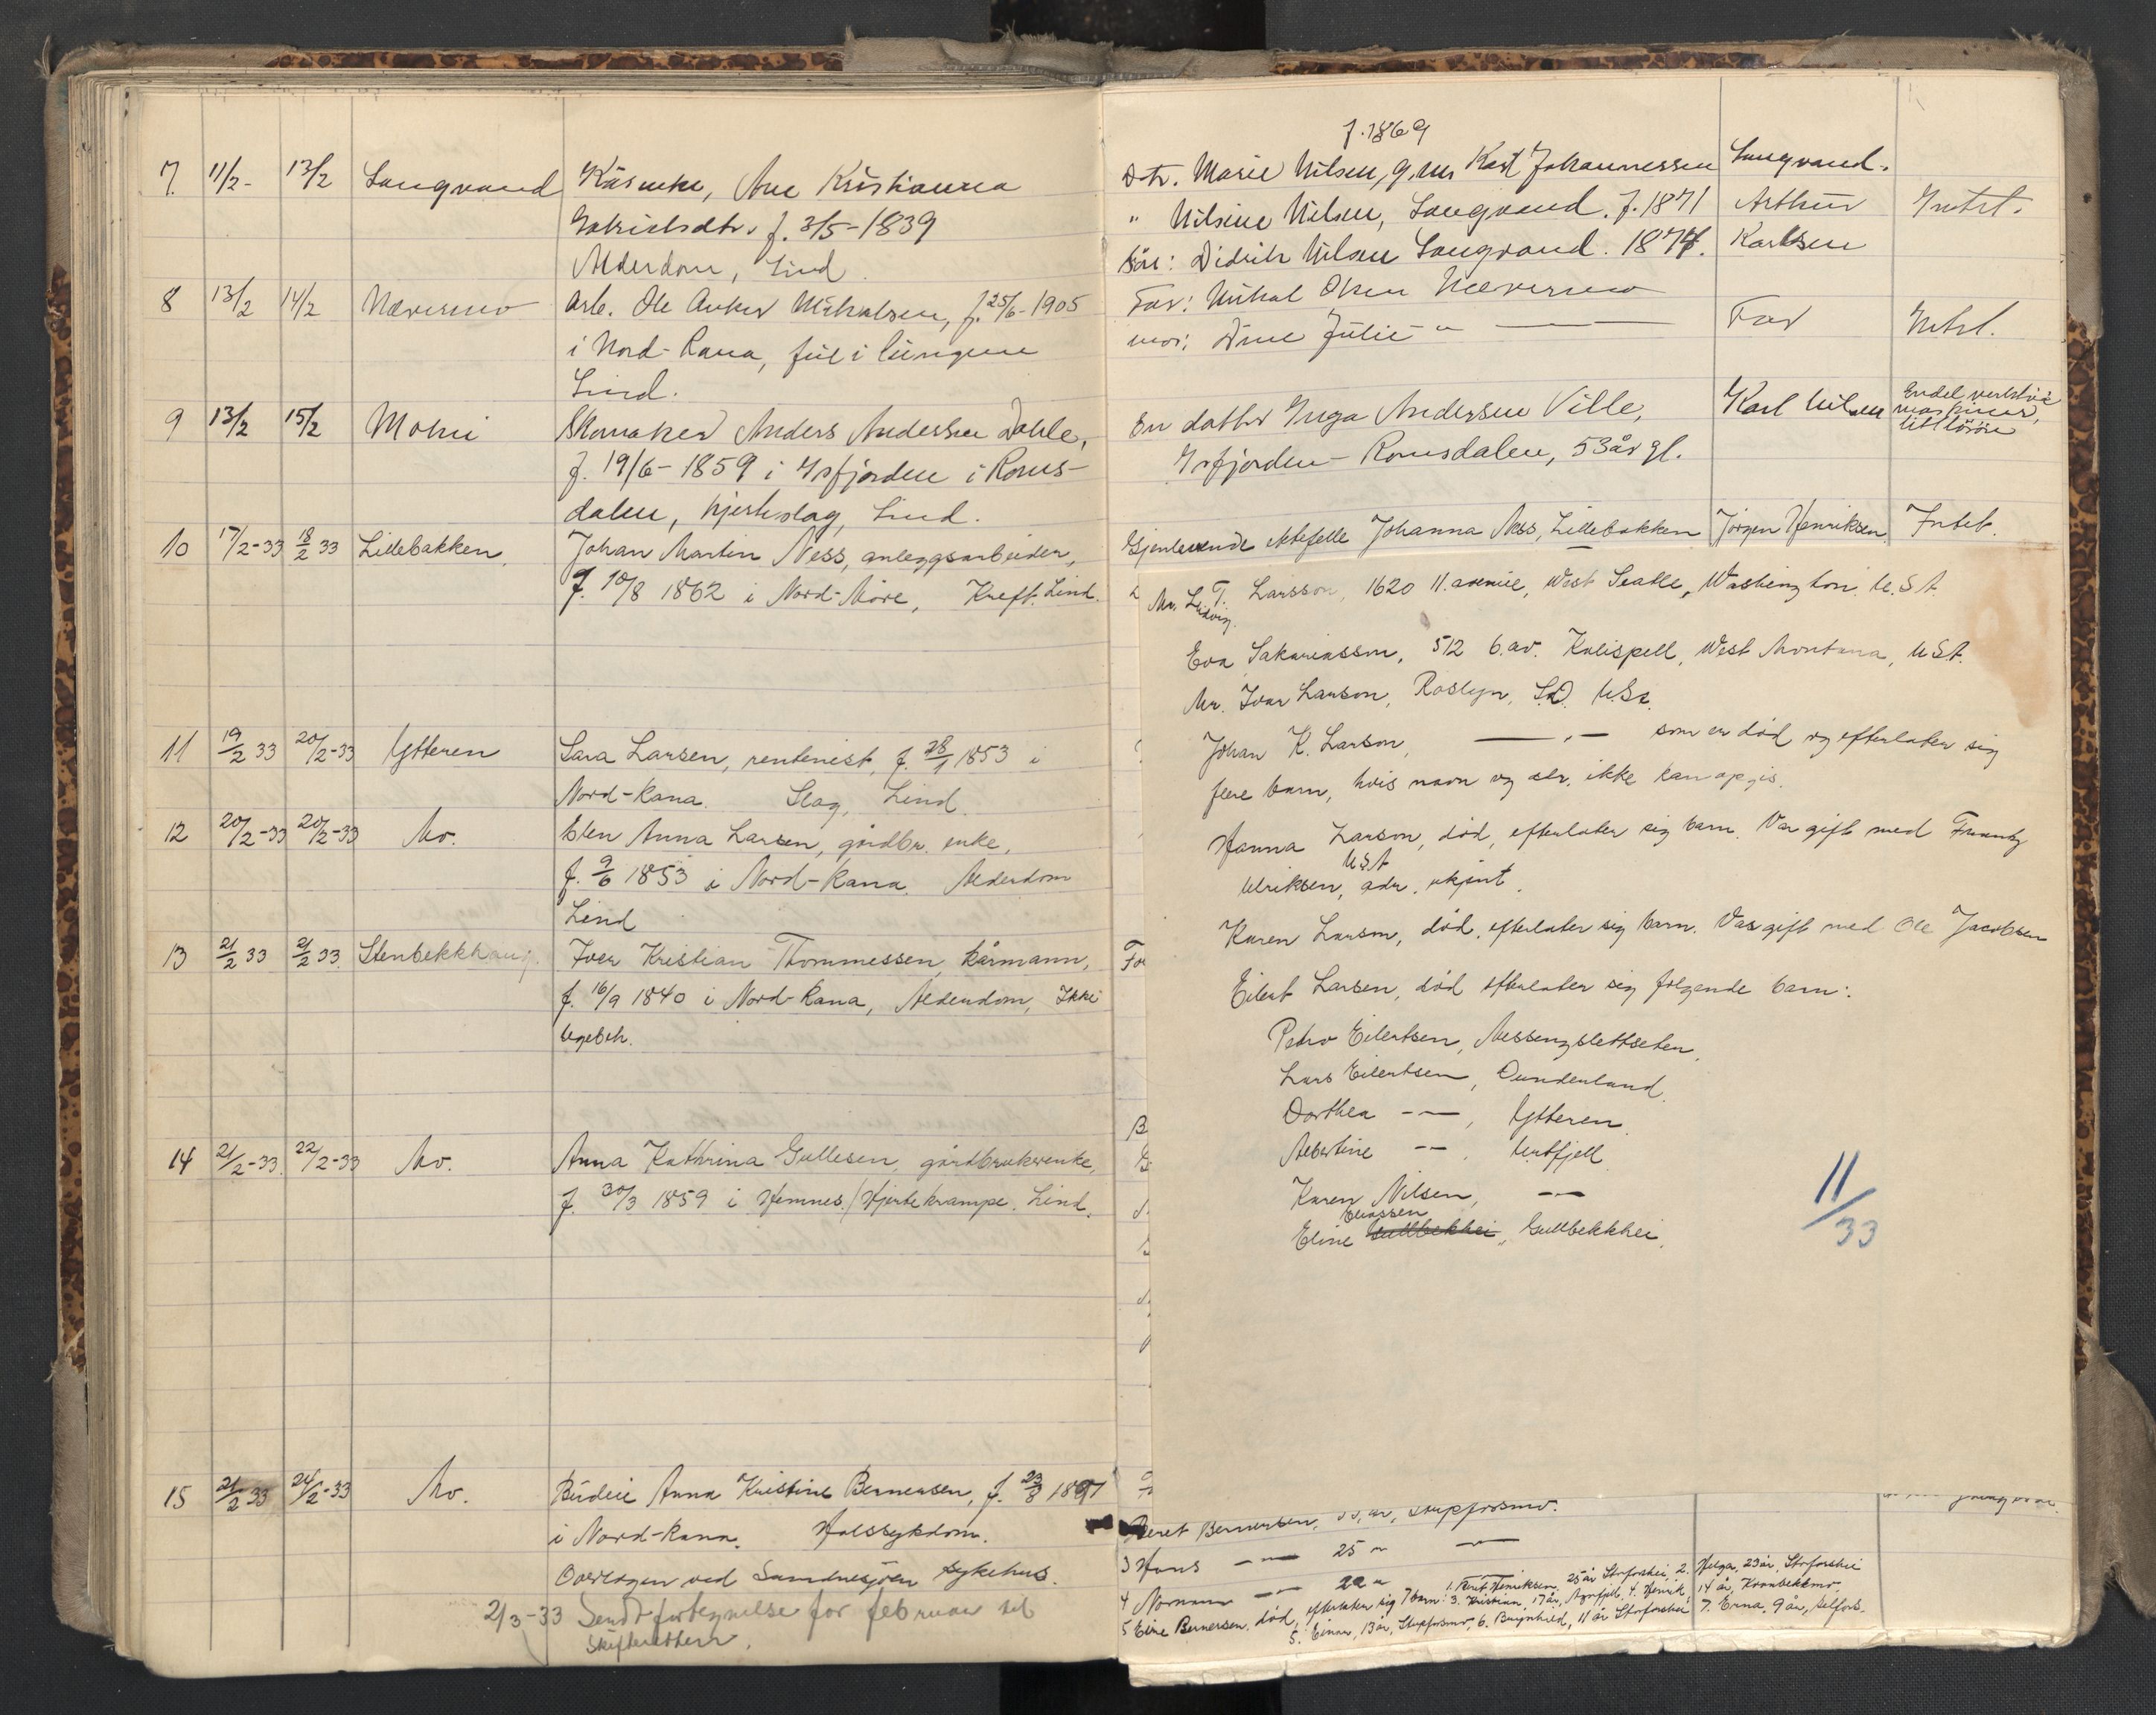 7. 11/2- 13/2 Langvand Kårenke, Ane Kristianna
Gabrielsdtr. f. 3/5-1839
Alderdom, Lind.
8 13/2 14/2 Næversmo Arb. Ole Anker Mikalsen, f. 25/6-1905
i Nord-Rana,
Lind.
9 13/2 15/2 Mohei Skomaker Anders Andersen Dahle,
f. 19/6-1859 i Isfjorden i Roms-
dalen, hjerteslag, Lind.
10 17/2-33 18/2 33 Lillebakken. Johan Martin Ness, anleggsarbeider,
f. 10/8 1862 i Nord-Møre, Kreft. Lind.
11 19/2 33 20/2-33 Ytteren Sara Larsen, rentenist, f. 28/1 1853 i
Nord-Rana. Slag, Lind.
12 20/2-33 20/2-33 Mo. Elen Anna Larsen, gårdbr. enke,
f. 9/6 1853 i Nord-Rana. Alderdom
Lind
13 21/2 33 21/2 33. Stenbekkhaug. Iver Kristian Thommessen, kårmann,
f. 16/9 1840 i Nord-Rana, Alderdom, Ikke
legebeh.
14 21/2-33. 22/2-33 Mo. Anna Kathrina Gullesen, gårdbrukerenke,
f. 30/3 1859 i Hemnes. Hjertekrampe. Lind.
15 21/2 33 24/2-33 Mo. Budeie Anna Kristine Bernersen, f. 23/8 1897
i Nord-Rana. Halssykdom.
Overlegen ved Sandnesjøen sykehus.
2/3-33 Sendt fortegnelse for februar til
skifteretten.
f. 1869
Dtr. Marie Nilsen, g.m. Karl Johannessen Langvand.
" Nilsine Nilsen, Langvand. f. 1871 Arthur Intet.
Søn: Didrik Nilsen Langvand. 1874. Karlsen
Far: Mikal Olsen Næversmo
mor: Dine Julie -"- Far Intet.
En datter Inga Andersen Ville, Karl Nilsen Endel verktøi
maskiner,
litt løsøre
Isfjorden - Romsdalen, 53 år gl.
Gjenlevende ektefelle Johanna Ness, Lillebakken Jørgen Henriksen. Intet.
Mr. Ludvig T. Larsson, 1620 11. avenue, West Seatle, Washington. U.S.A.
Eva Sakariasson, 512 6. av. Kalispell, West Montana, USA.
Mr. Ivar Larson, Roslyn, S.D. U.S.A.
Johan K. Larson, —"— som er død og efterlater sig
flere barn, hvis navn og adr. ikke kan opgis.
Hanna Larson, død, efterlater sig barn. Var gift med Frantz
USA
Ulriksen, adr. ukjent.
Karen Larson, død, efterlater sig barn. Var gift med Ole Jacobsen
Eilert Larsen, død efterlater sig følgende barn:
Petro Eilertsen, Messingslettseten.
Lars Eilertsen, Dunderland.
Dorthea -"-, Ytteren.
Albertine -"-, Urtfjell.
Karen Nilsen, -"-
Eliassen
Eline Gullbekkhei, Gullbekkhei.
11/33
Beret Bernersen,
3 Hans -"- 25 " -"-
4 Normann -"- 22 "
5 Eline Bernersen, død, efterlater sig 7 barn: 1. Henriksen, 25 år Storforshei, 2. Helga, 23 år, Storforshei
3. Kristian, 17 år, 4. Henrik, 14 år,
5. Einar, 13 år, 6. Brynhild, 11 år Storforshei 7. Erna, 9 år, Selfors.